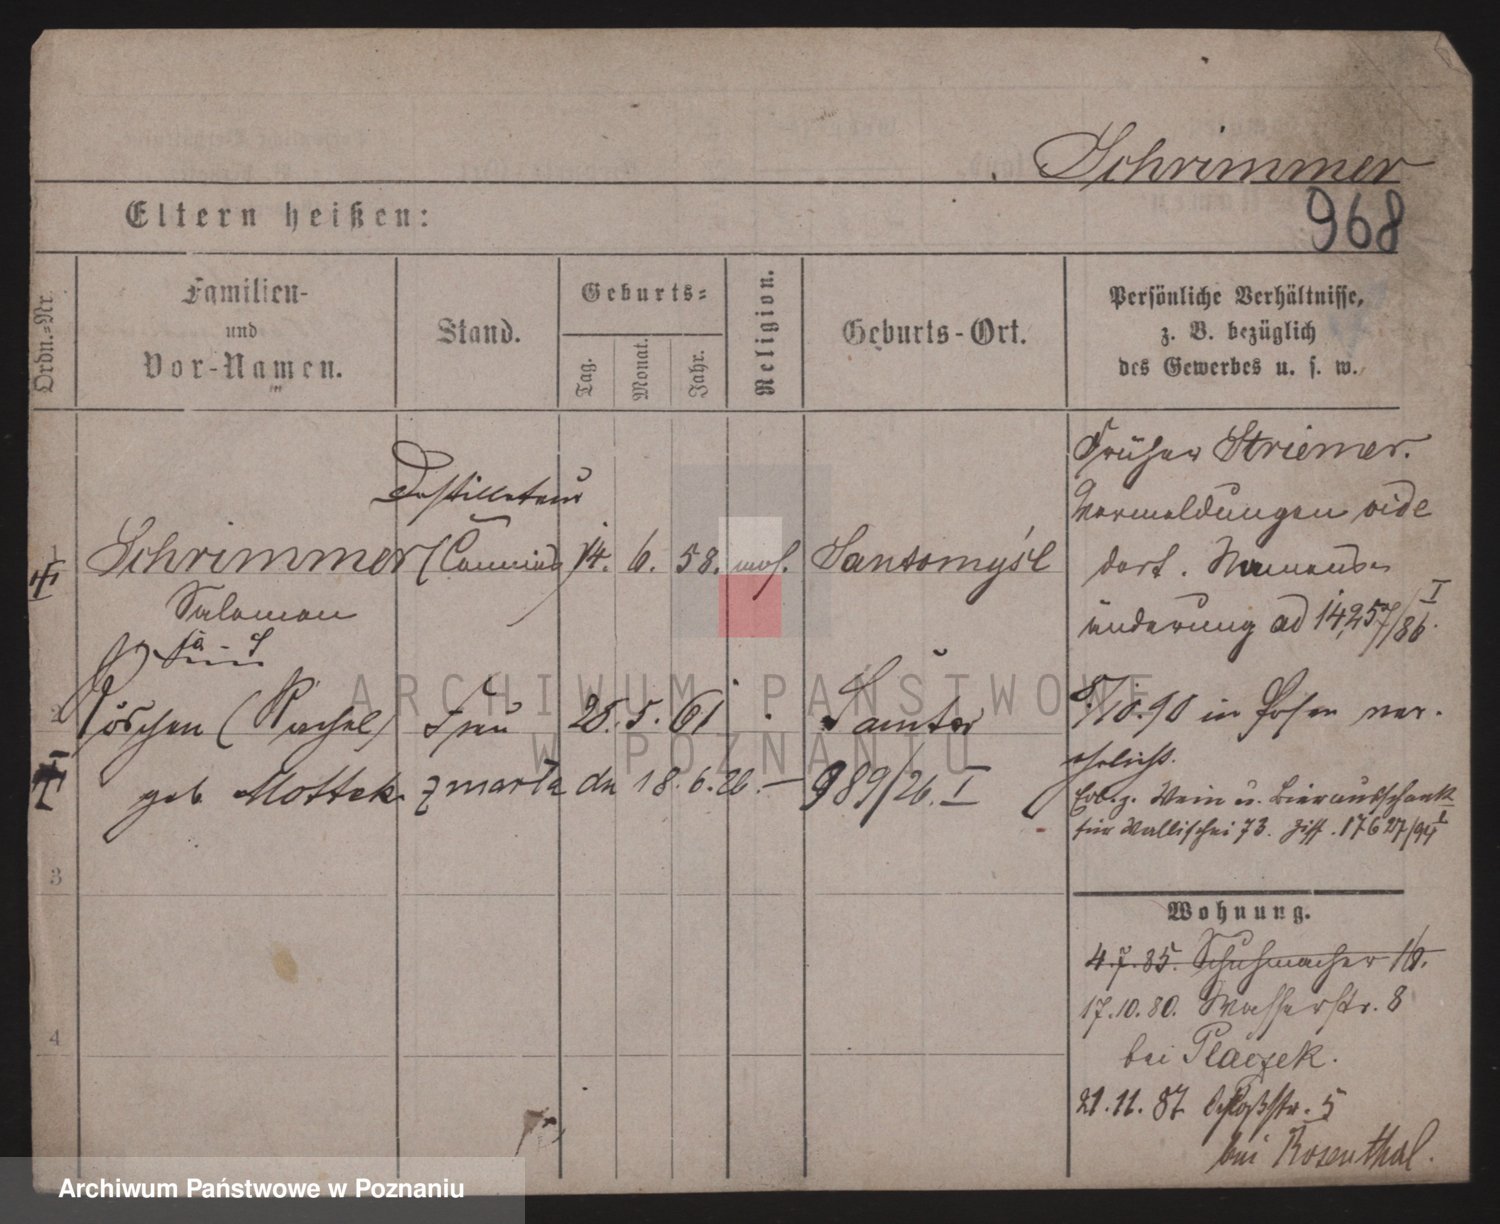 Schrimmer
968
Eltern heißen:
Ordn.-Nr.
Familien-
und
Vor-Namen.
Stand.
Geburts-
Tag.
Monat.
Jahr.
Religion.
Geburts-Ort.
Persönliche Verhältnisse,
z. B. bezüglich
des Gewerbes u. s. w.
Destillateur
1 Schrimmer (Commis) 14. 6. 58. mos. Santomyśl
Salomon
2 Röschen (Rachel) Frau 25. 5. 61 Samter
geb. Mottek zmarła dn 18.6.26. — 989/26. I
3
4
früher Striemer.
Vermeldungen vide
dort. Namens-
änderung ad 14257/86 I
5/10.90 in Posen ver-
ehelicht.
Erl. z. Wein u. Bierausschank
für Wallischei 73. Ziff. 17627/94 I
Wohnung.
4.7.85. Schuhmacher 16.
17.10.80. Wasserstr. 8
bei Placzek.
21.11.87 Schloßstr. 5
bei Rosenthal.
ARCHIWUM PAŃSTWOWE
W POZNANIU
Archiwum Państwowe w Poznaniu